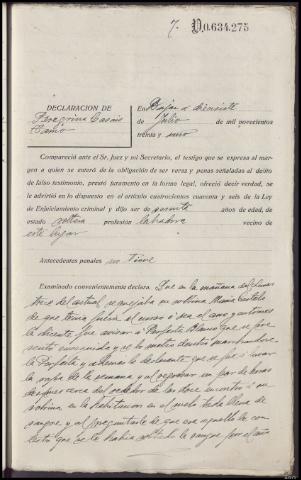 7. D.0.634.275
DECLARACION DE
Peregrina Casais
En a diecisiete
de Julio de mil novecientos
treinta y uno
Compareció ante el Sr. Juez y mi Secretario, el testigo que se expresa al mar-
gen a quien se enteró de la obligación de ser veraz y penas señaladas al delito de
falso testimonio, prestó juramento en la forma legal, ofreció decir verdad, se
le advirtió en lo dispuesto en el artículo cuatrocientos cuarenta y seis de la Ley
de Enjuiciamiento criminal y dijo ser de años de edad, de
estado soltera profesión labradora vecino de
este lugar
Antecedentes penales no tiene
Examinado convenientemente declara. Que en la mañana del
del actual, se quejaba su sobrina María
de que tenía el
la dicente fue avisar a Perfecta Blanco que se pre-
sentó enseguida y
la Perfecta y además la declarante que se fué a lavar
la ropa de la semana y al regresar un par de horas
después cerca del de las doce encontró a su
sobrina en la habitación en el suelo toda llena de
sangre y al preguntarle de que era aquello con-
testó que se le había soltado la sangre por el